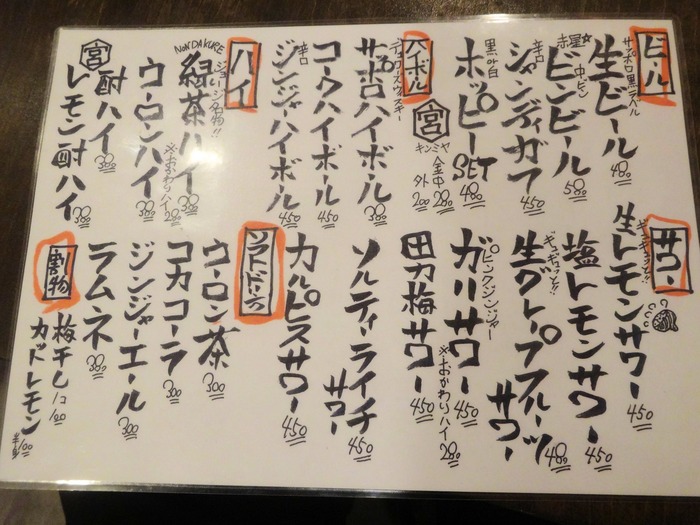 ビール
サッポロ黒ラベル
生ビール 480
赤星☆ 中ビン
ビンビール 580
辛口
シャンディガフ 450
黒or白
ホッピーSET 480
宮
キンミヤ
金中 280
外 200
ハイボール
デュワーズウィスキー
サッポロハイボール 380
コークハイボール 450
辛口
ジンジャーハイボール 450
ハイ
ジョージ名物!!
NONDAKURE
緑茶ハイ 380
※おかわりハイ 280
ウーロンハイ 380
宮
酎ハイ 380
レモン酎ハイ 380
サワー
ギュギュッと!!
生レモンサワー 450
塩レモンサワー 450
ギュギュッと!!
生グレープフルーツサワー 480
ピンクジンジャー
ガリサワー 450
※おかわりハイ 280
田力梅サワー 450
ソルティーライチサワー 450
カルピスサワー 450
ソフトドリンク
ウーロン茶 300
コカコーラ 300
ジンジャーエール 300
ラムネ 380
割物
梅干し 1コ 100
カットレモン 半身 100